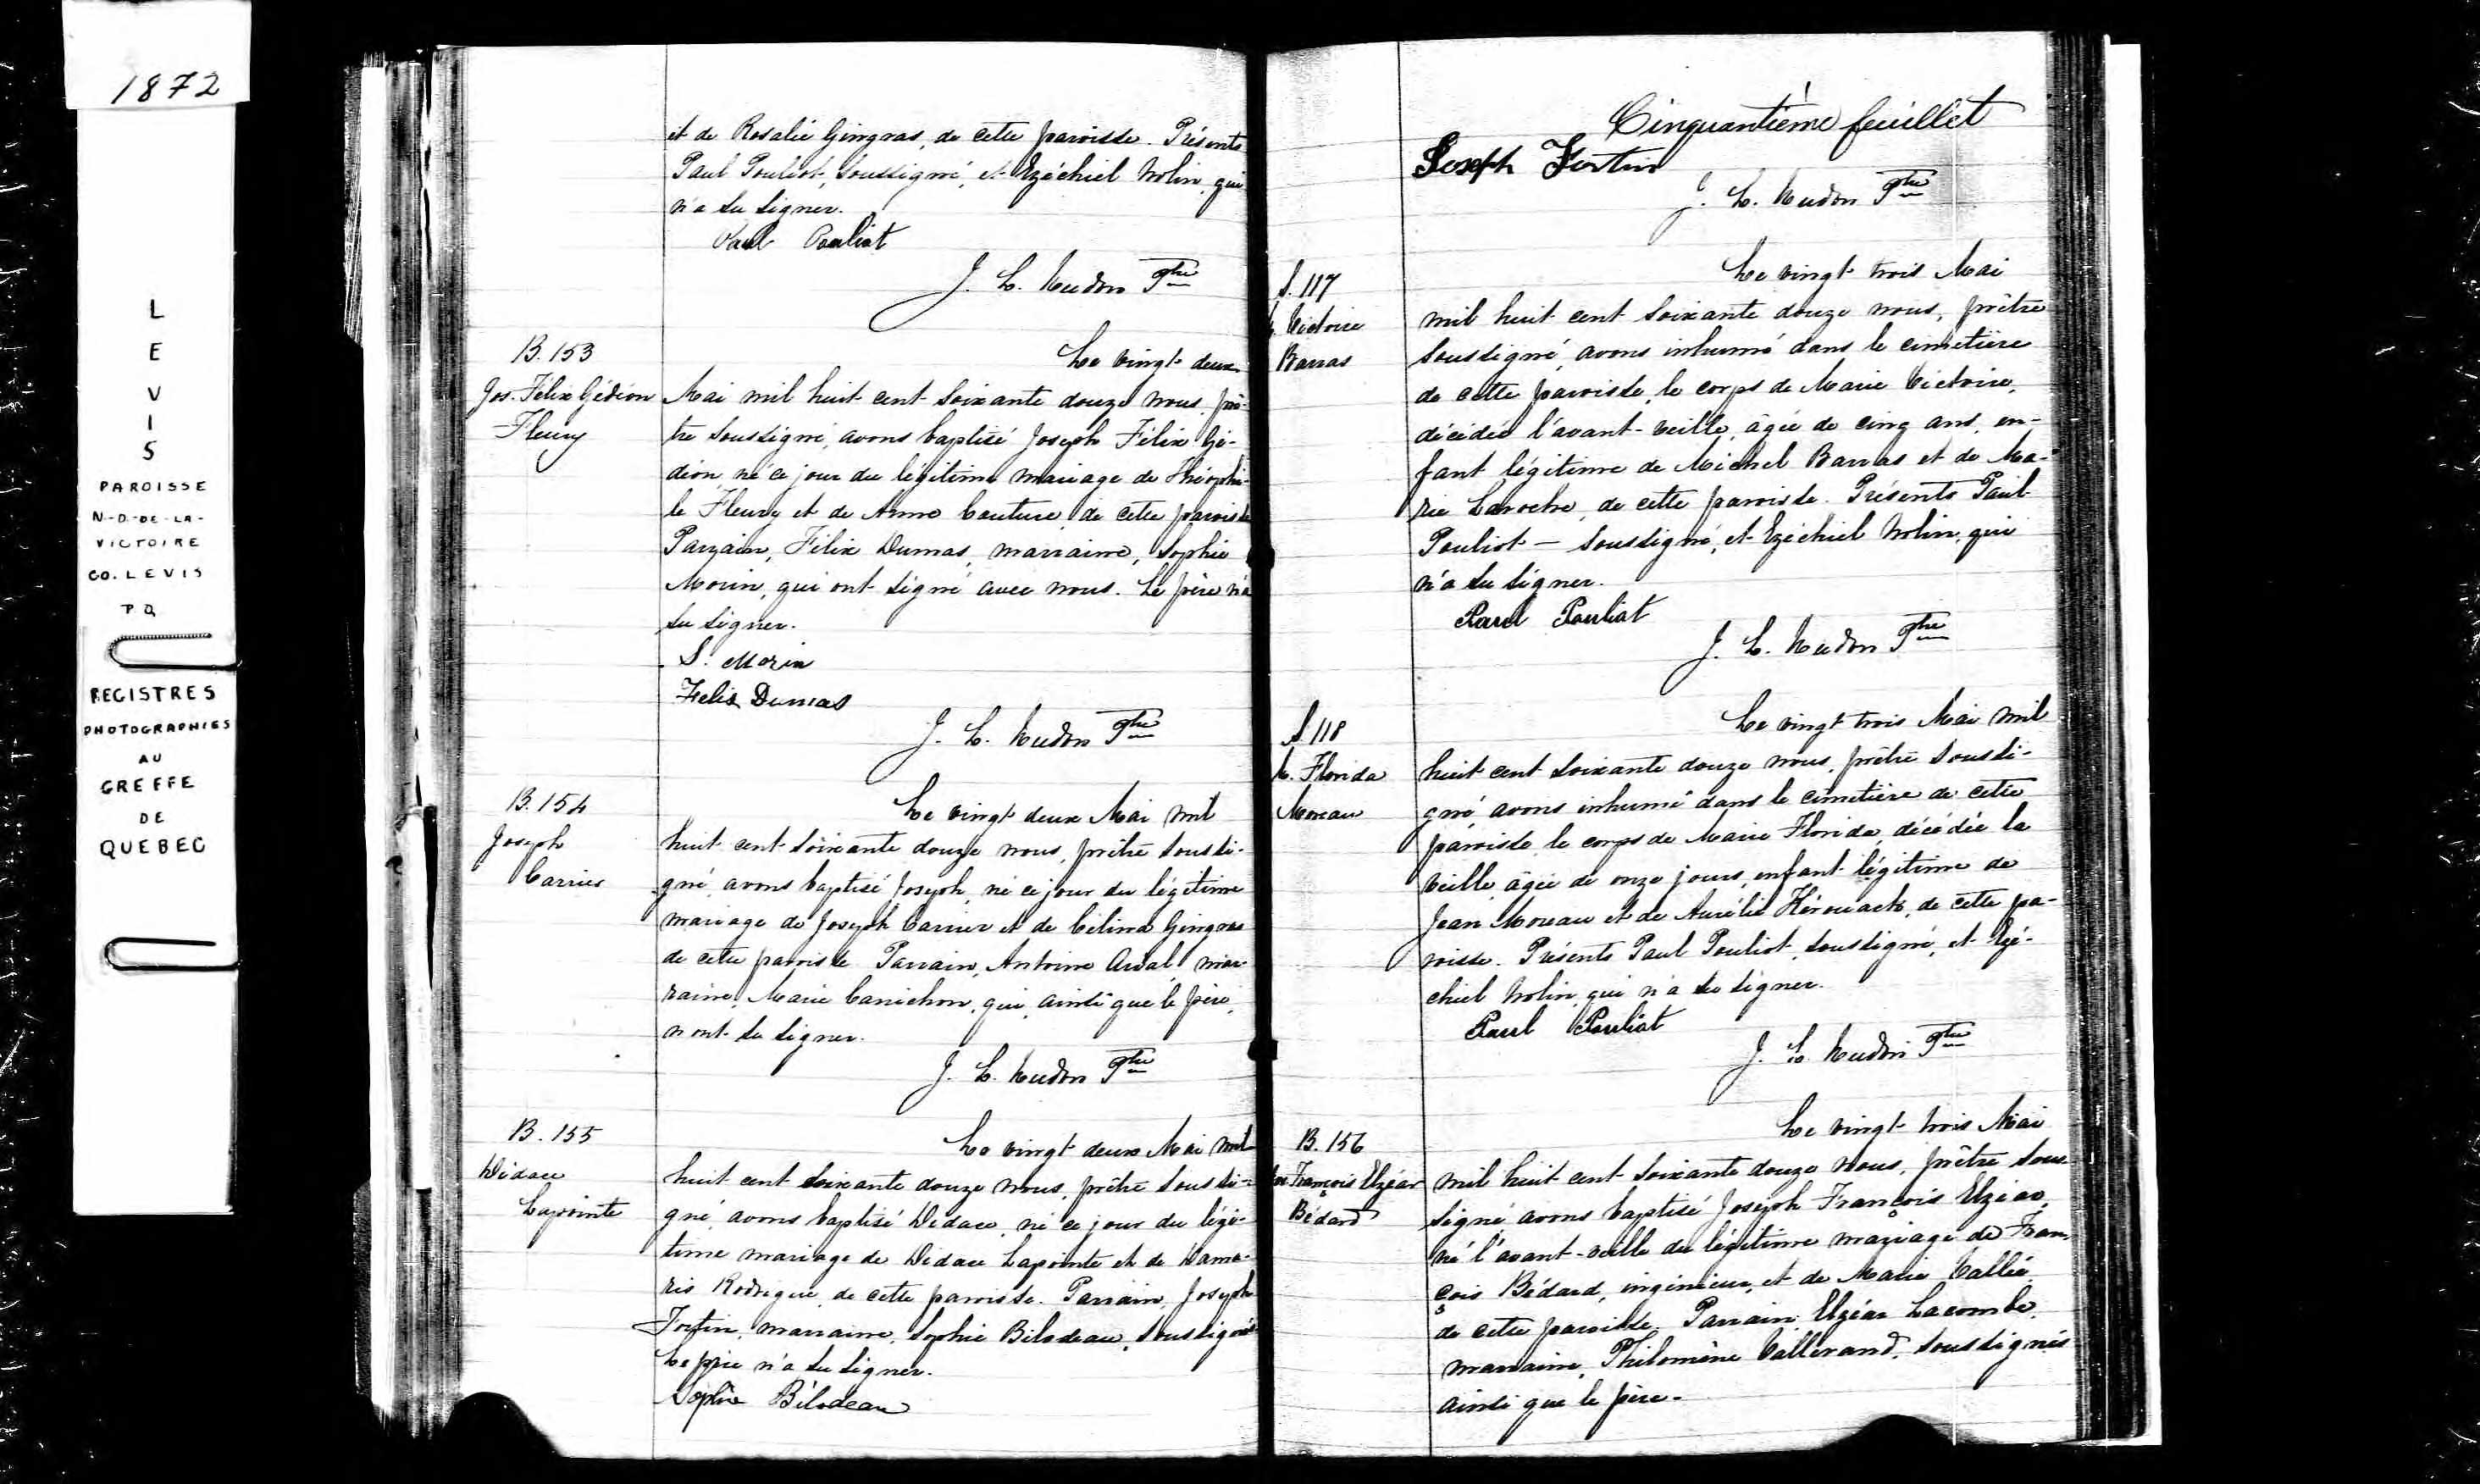 1872
L
E
V
I
S
PAROISSE
N.-D.-DE-LA-
VICTOIRE
CO. LEVIS
P Q
REGISTRES
PHOTOGRAPHIES
AU
GREFFE
DE
QUEBEC
et de Rosalie Gingras, de cette paroisse. Présents
Paul Pouliot, soussigné, et Ezéchiel Nolin, qui
n'a su signer.
Paul Pouliot
J. L. Hudon Ptre
B. 153
Jos. Félix Gédéon
Fleury
Le vingt deux
Mai mil huit cent soixante douze nous, prê-
tre soussigné, avons baptisé Joseph Félix Gé-
déon, né ce jour du légitime mariage de Théophi-
le Fleury et de Anne Couture, de cette paroisse
Parrain, Félix Dumas, marraine, Sophie
Morin, qui ont signé avec nous. Le père n'a
su signer.
S. Morin
Felix Dumas
J. L. Hudon Ptre
B. 154
Joseph
Carrier
Le vingt deux Mai mil
huit cent soixante douze nous, prêtre soussi-
gné, avons baptisé Joseph, né ce jour du légitime
mariage de Joseph Carrier et de Célina Gingras
de cette paroisse Parrain, Antoine mar-
raine, Marie Canichon, qui, ainsi que le père,
n'ont su signer.
J. L. Hudon Ptre
B. 155
Didace
Lapointe
Le vingt deux Mai mil
huit cent soixante douze nous, prêtre soussi-
gné, avons baptisé Didace, né ce jour du légi-
time mariage de Didace Lapointe et de Dama-
ris Rodrigue, de cette paroisse. Parrain, Joseph
Fortin, marraine, Sophie Bilodeau, soussignés
Le père n'a su signer.
Sophie Bilodeau
Cinquantième feuillet
Joseph Fortin
J. L. Hudon Ptre
S. 117
M. Victoire
Barras
Le vingt trois Mai
mil huit cent soixante douze nous, prêtre
soussigné, avons inhumé dans le cimetière
de cette paroisse, le corps de Marie Victoire,
décédée l'avant-veille, âgée de cinq ans, en-
fant légitime de Michel Barras et de Ma-
rie Laroche, de cette paroisse. Présents Paul
Pouliot — soussigné, et Ezéchiel Nolin, qui
n'a su signer.
Paul Pouliot
J. L. Hudon Ptre
S. 118
M. Florida
Moreau
Le vingt trois Mai mil
huit cent soixante douze nous, prêtre soussi-
gné, avons inhumé dans le cimetière de cette
paroisse le corps de Marie Florida, décédée la
veille, âgée de onze jours, enfant légitime de
Jean Moreau et de Aurélie Kérouack, de cette pa-
roisse. Présents Paul Pouliot, soussigné, et Ezé-
chiel Nolin, qui n'a su signer.
Paul Pouliot
J. L. Hudon Ptre
B. 156
Jos François Elzéar
Bédard
Le vingt trois Mai
mil huit cent soixante douze nous, prêtre sous-
signé, avons baptisé Joseph François Elzéar,
né l'avant-veille du légitime mariage de Fran-
çois Bédard, ingénieur, et de Marie Vallée
de cette paroisse. Parrain, Elzéar Lacombe,
marraine, Philomène Vallerand, soussignés
ainsi que le père.